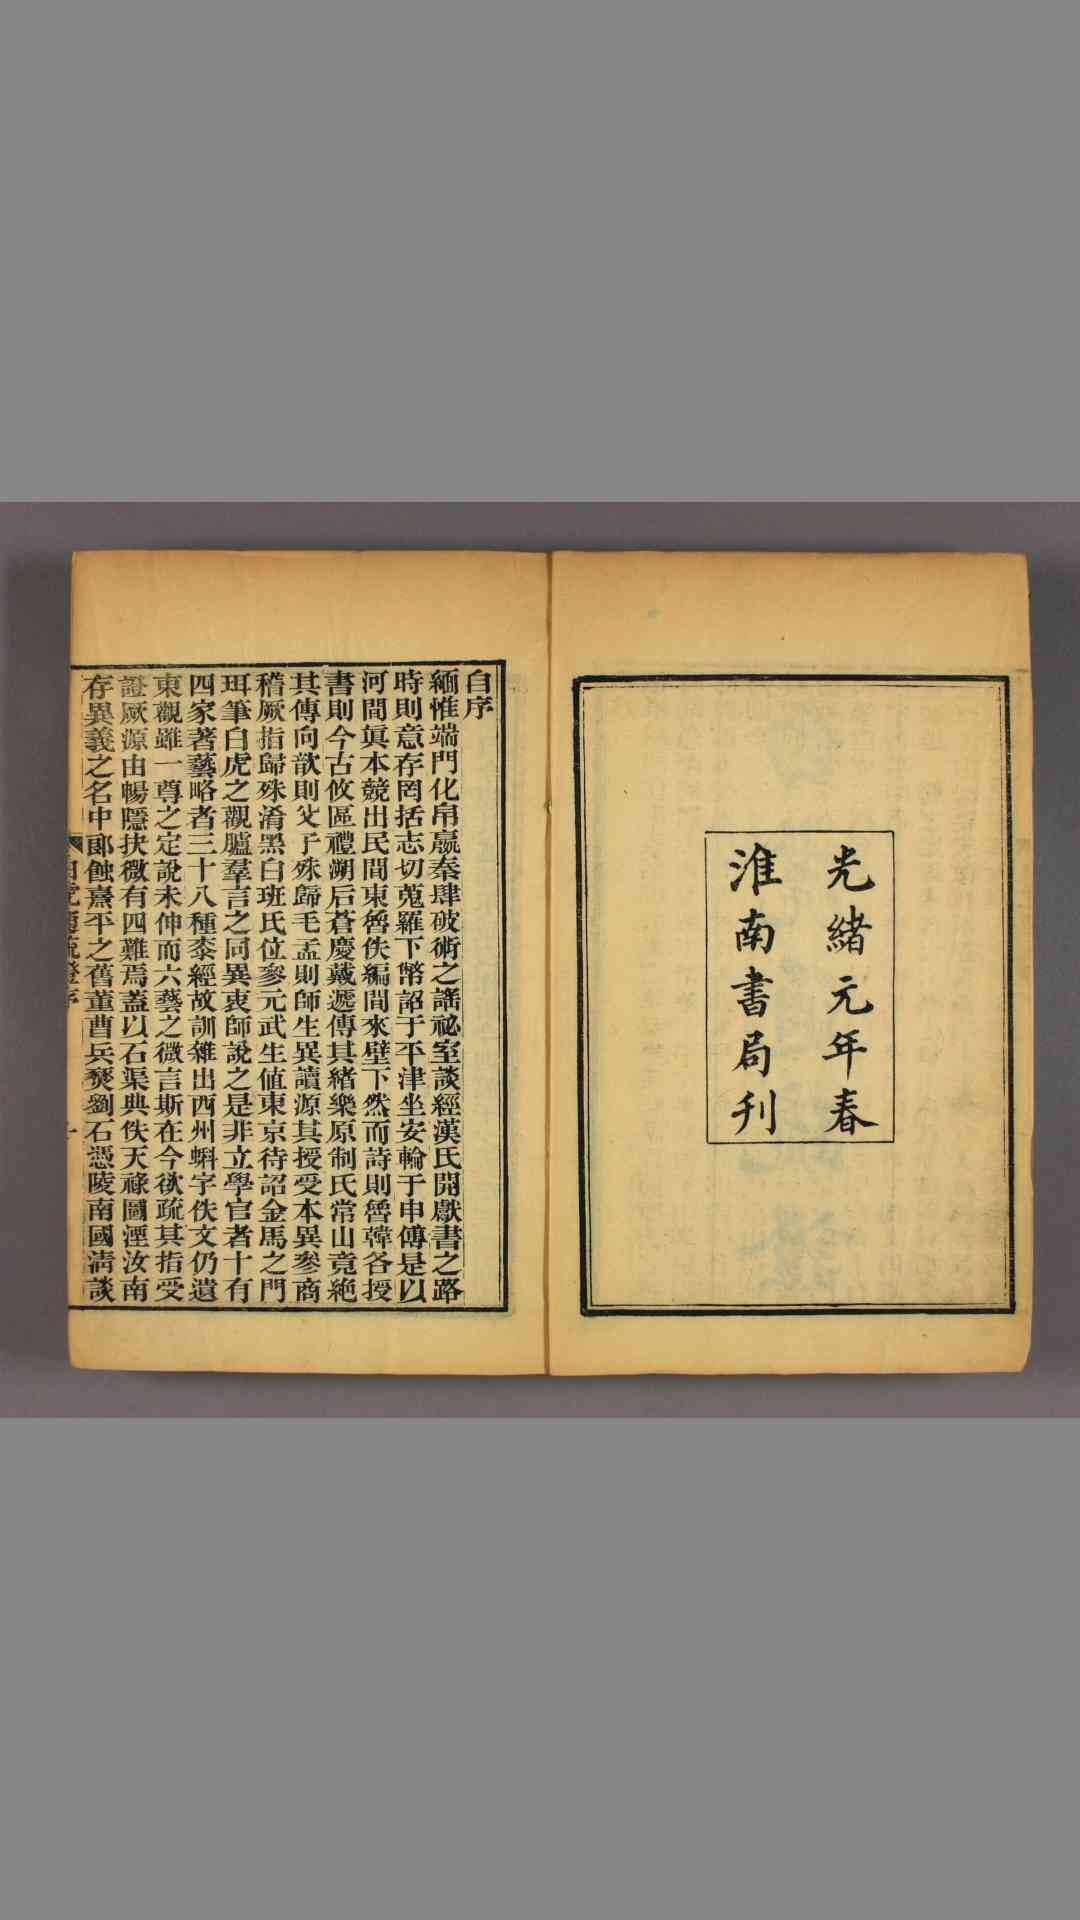 光緒元年春
淮南書局刊
自序
緬惟端門化帛嬴秦肆破術之謠祕室談經漢氏開獻書之路
時則意存罔括志切蒐羅下幣詔于平津坐安輪于申傅是以
河間眞本競出民間東魯佚編間來壁下然而詩則魯韓各授
書則今古攸區禮溯后蒼慶戴遞傳其緒樂原制氏常山竟絶
其傳向歆則父子殊歸毛孟則師生異讀源其授受本異參商
稽厥指歸殊淆黑白班氏位參元武生値東京待詔金馬之門
珥筆白虎之觀臚羣言之同異衷師說之是非立學官者十有
四家著藝略者三十八種桼經故訓雜出西州蝌字佚文仍遺
東觀雖一尊之定說未伸而六藝之微言斯在今欲疏其指受
證厥源由暢隱抉微有四難焉蓋以石渠典佚天祿圖湮汝南
存異義之名中郞蝕熹平之舊董曹兵燹劉石憑陵南國淸談
白虎通疏證序 一